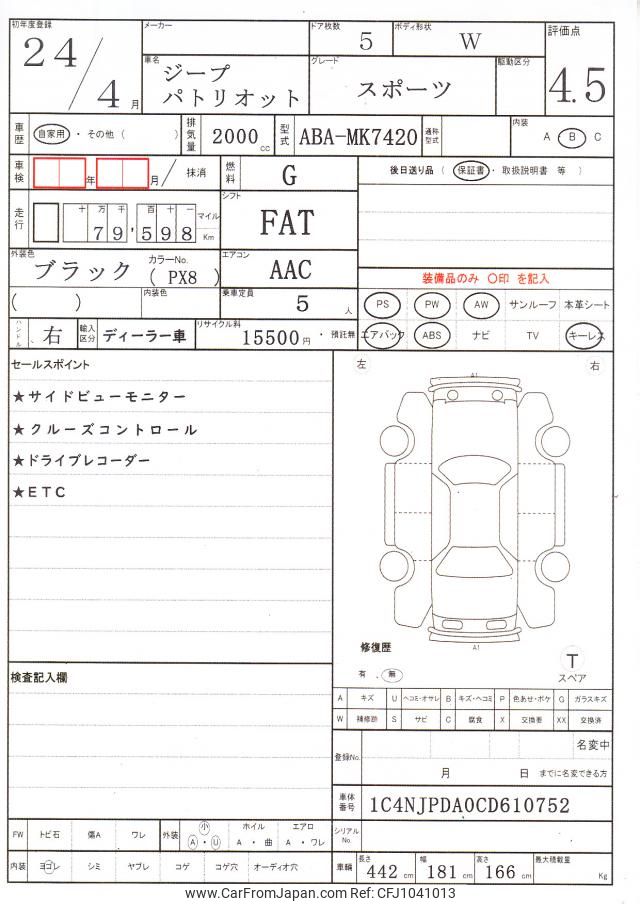 初年度登録 メーカー ドア枚数 ボディ形状 評価点
24/4月 5 W 4.5
車名 グレード 駆動区分
ジープ
パトリオット スポーツ
車歴 自家用・その他( ) 排気量 2000cc 型式 ABA-MK7420 通称型式 内装 A B C
車検 年 月/ 抹消 燃料 G 後日送り品(保証書・取扱説明書 等)
走行 十 万 千 百 十 一 マイル Km シフト
79,598 FAT
外装色 カラーNo. エアコン
ブラック (PX8) AAC 装備品のみ 〇印 を記入
( ) 内装色 乗車定員 5人 PS PW AW サンルーフ 本革シート
ハンドル 右 輸入区分 ディーラー車 リサイクル料 15500円・預託無 エアバック ABS ナビ TV キーレス
セールスポイント 左 右
A1
★サイドビューモニター
★クルーズコントロール
★ドライブレコーダー
★ETC
A1
修復歴
有 . 無
T
スペア
検査記入欄
A キズ U ヘコミ・オサレ B キズ・ヘコミ P 色あせ・ボケ G ガラスキズ
W 補修跡 S サビ C 腐食 X 交換要 XX 交換済
登録No. 名変中
月 日 までに名変できる方
車体番号 1C4NJPDA0CD610752
FW トビ石 傷A ワレ 外装 小 A・U ホイル A・曲 エアロ A・ワレ シリアルNo.
内装 ヨゴレ シミ ヤブレ コゲ コゲ穴 オーディオ穴 車輌 長さ 442cm 幅 181cm 高さ 166cm 最大積載量 Kg
www.CarFromJapan.com Ref: CFJ1041013